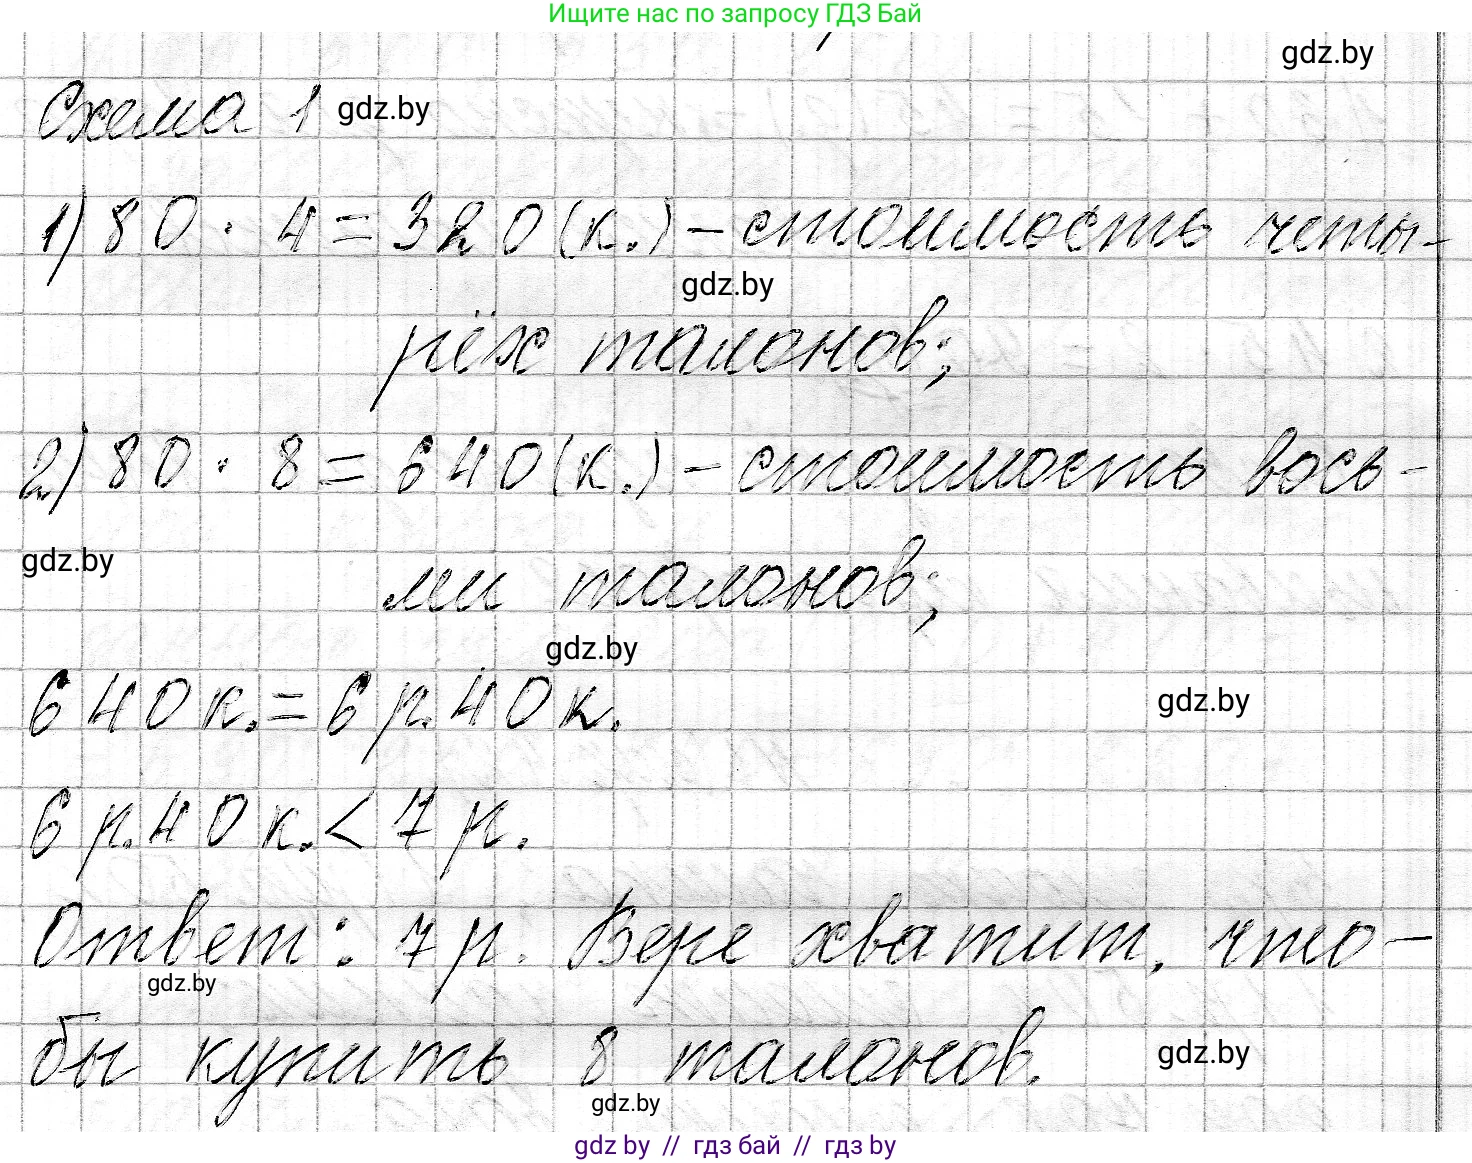 Ищите нас по запросу ГДЗ Бай
gdz.by
Схема 1 gdz.by
1) 80 · 4 = 320 (к.) – стоимость четы-
gdz.by
рёх талонов;
2) 80 · 8 = 640 (к.) – стоимость вось-
gdz.by
ми талонов;
gdz.by
640 к. = 6 р. 40 к.
gdz.by
6 р. 40 к. < 7 р.
Ответ: 7 р. Вере хватит, что-
gdz.by
бы купить 8 талонов.
gdz.by
gdz.by
gdz by // гдз бай // гдз by